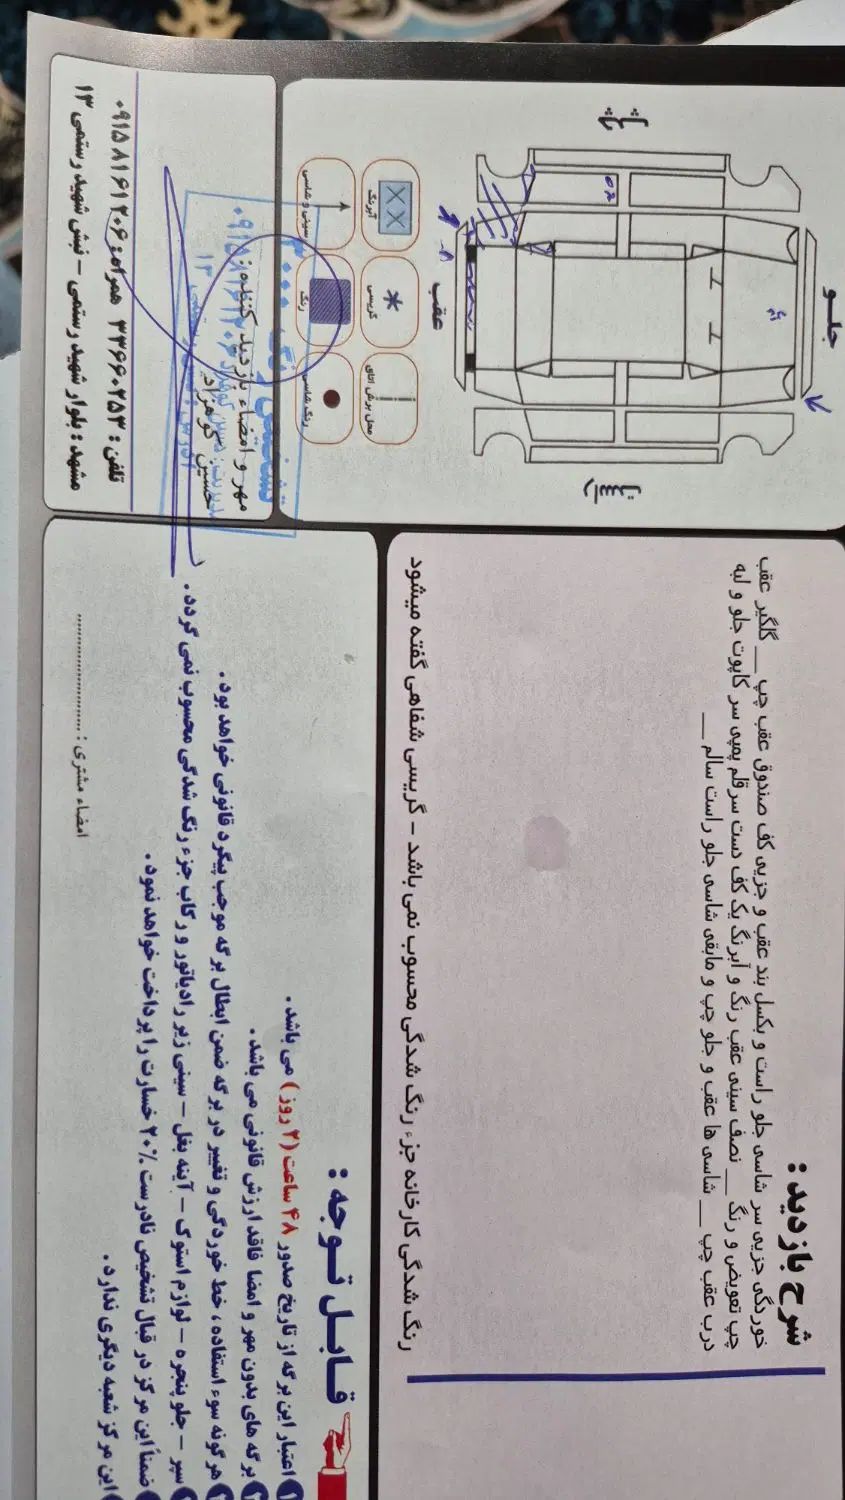 شرح بازدید :
خوردگی جزیی سر شاسی جلو راست و بکسل بند عقب و جزیی کف صندوق عقب چپ __ گلگیر عقب
چپ تعویض و رنگ __ نصف سینی عقب رنگ و آبرنگ یک کف دست سر قلم پمپی سر کاپوت جلو و لبه
درب عقب چپ __ شاسی ها عقب و جلو چپ و مابقی شاسی جلو راست سالم __
رنگ شدگی کارخانه جزء رنگ شدگی محسوب نمی باشد - گریسی شفاهی گفته میشود
جلو
عقب
چپ
راست
آبرنگ
گریسی
محل برش اتاق
سینی و شاسی
رنگ
رنگ شاسی
قابل توجه :
اعتبار این برگه از تاریخ صدور ۴۸ ساعت (۲ روز) می باشد.
برگه های بدون مهر و امضا فاقد ارزش قانونی می باشد.
هرگونه سوء استفاده، خط خوردگی و تغییر در برگه ضمن ابطال برگه موجب پیگرد قانونی خواهد بود.
سپر - جلو پنجره - لوازم استوک - آینه بغل - سینی زیر رادیاتور و رکاب جزء رنگ شدگی محسوب نمی گردد.
ضمناً این مرکز در قبال تشخیص نادرست ۲۰٪ خسارت را پرداخت خواهد نمود.
این مرکز شعبه دیگری ندارد.
امضاء مشتری : ........................
مهر و امضاء بازدید کننده :
حسین گوهرزاد
تلفن : ۳۳۶۶۰۲۵۳ همراه: ۰۹۱۵۸۱۶۱۲۰۶
مشهد : بلوار شهید رستمی - نبش شهید رستمی ۱۳